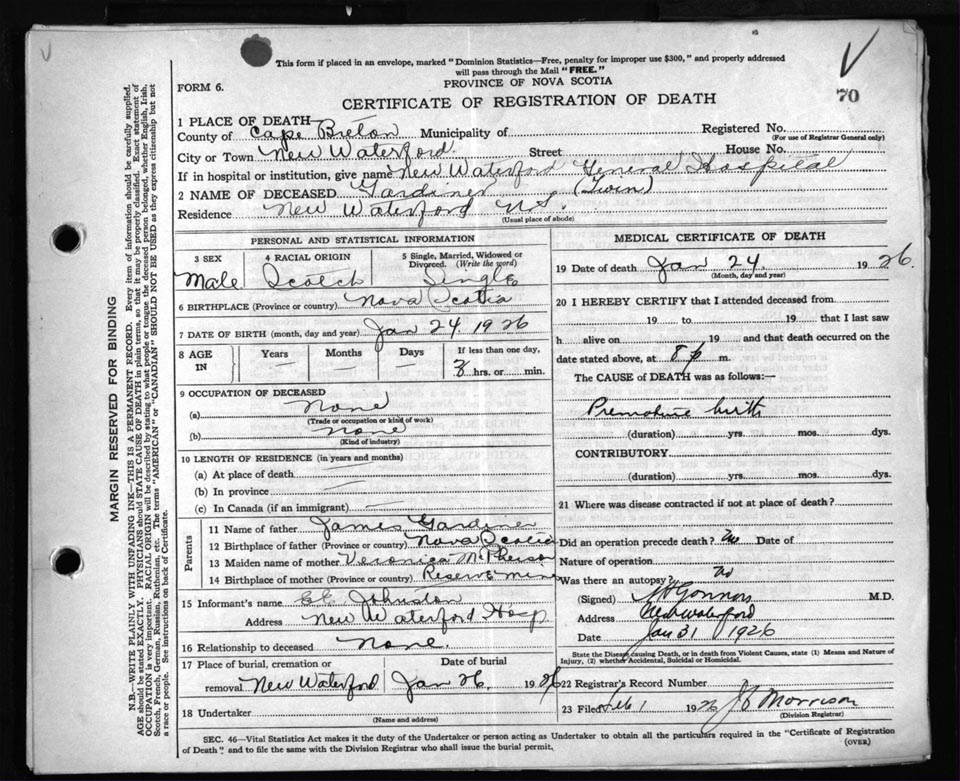 This form if placed in an envelope, marked "Dominion Statistics—Free, penalty for improper use $300," and properly addressed
will pass through the Mail "FREE."
FORM 6.
PROVINCE OF NOVA SCOTIA
CERTIFICATE OF REGISTRATION OF DEATH
70
1 PLACE OF DEATH
Registered No.
(For use of Registrar General only)
County of Cape Breton Municipality of
City or Town New Waterford Street House No.
If in hospital or institution, give name New Waterford General Hospital
2 NAME OF DECEASED Gardiner (Twin)
Residence New Waterford N.S.
(Usual place of abode)
PERSONAL AND STATISTICAL INFORMATION
3 SEX Male
4 RACIAL ORIGIN Scotch
5 Single, Married, Widowed or Divorced. (Write the word) Single
6 BIRTHPLACE (Province or country) Nova Scotia
7 DATE OF BIRTH (month, day and year) Jan 24 1926
8 AGE IN Years — Months — Days — If less than one day, hrs. or min.
9 OCCUPATION OF DECEASED
(a) None
(Trade or occupation or kind of work)
(b) None
(Kind of industry)
10 LENGTH OF RESIDENCE (in years and months)
(a) At place of death
(b) In province
(c) In Canada (if an immigrant)
Parents
11 Name of father James Gardiner
12 Birthplace of father (Province or country) Nova Scotia
13 Maiden name of mother Veronica McPherson
14 Birthplace of mother (Province or country) Reserve Mines
15 Informant's name Johnston
Address New Waterford Hosp
16 Relationship to deceased None.
17 Place of burial, cremation or removal New Waterford Date of burial Jan 26 1926
18 Undertaker
(Name and address)
MEDICAL CERTIFICATE OF DEATH
19 Date of death Jan 24, 1926.
(Month, day and year)
20 I HEREBY CERTIFY that I attended deceased from
19 to 19 that I last saw
h alive on 19 and that death occurred on the
date stated above, at 8 p m.
The CAUSE of DEATH was as follows:—
Premature birth
(duration) yrs. mos. dys.
CONTRIBUTORY
(duration) yrs. mos. dys.
21 Where was disease contracted if not at place of death?
Did an operation precede death? No Date of
Nature of operation
Was there an autopsy? No
(Signed) M.D.
Address New Waterford
Date Jan 31 1926
State the Disease causing Death, or in death from Violent Causes, state (1) Means and Nature of
Injury, (2) whether Accidental, Suicidal or Homicidal.
22 Registrar's Record Number
23 Filed Feb 1 1926 Morrison
(Division Registrar)
SEC. 46—Vital Statistics Act makes it duty of the Undertaker or person acting as Undertaker to obtain all the particulars required in the "Certificate of Registration
of Death" and to file the same with the Division Registrar who shall issue the burial permit.
(OVER)
MARGIN RESERVED FOR BINDING
N.B.—WRITE PLAINLY WITH UNFADING INK—THIS IS A PERMANENT RECORD. Every item of information should be carefully supplied.
AGE should be stated EXACTLY. PHYSICIANS should STATE CAUSE OF DEATH in plain terms, so that it may be properly classified. Exact statement of
OCCUPATION is very important. RACIAL ORIGIN will be described by stating to what people or tongue the deceased person belonged, whether English, Irish,
Scotch, French, German, Russian, Ruthenian, etc. The terms "AMERICAN" or "CANADIAN" SHOULD NOT BE USED as they express citizenship but not
a race or people. See instructions on back of Certificate.